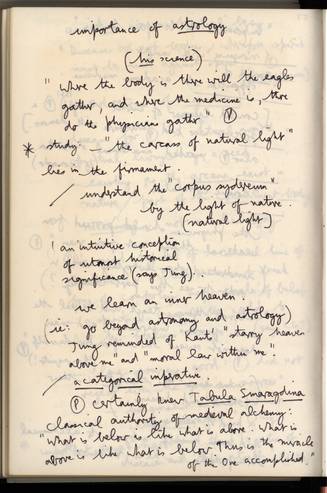 importance of astrology
(his science)
" Where the body is there will the eagles
gather, and where the medicine is, there
do the physicians gather " Ⓟ
* study. – "the carcass of natural light"
lies in the firmament.
/ understand the "corpus sydereum"
by the light of nature.
(natural light)
! an intuitive conception
of utmost historical
significance (says Jung).
we learn an inner heaven.
(ie: go beyond astronomy and astrology)
Jung reminded of Kant's "starry heaven
above me" and "moral law within me".
/ a categorical imperative.
Ⓟ certainly knew Tabula Smaragdina
classical authority of medieval alchemy:
"What is below is like what is above. What is
above is like what is below. Thus is the miracle
of the One accomplished."